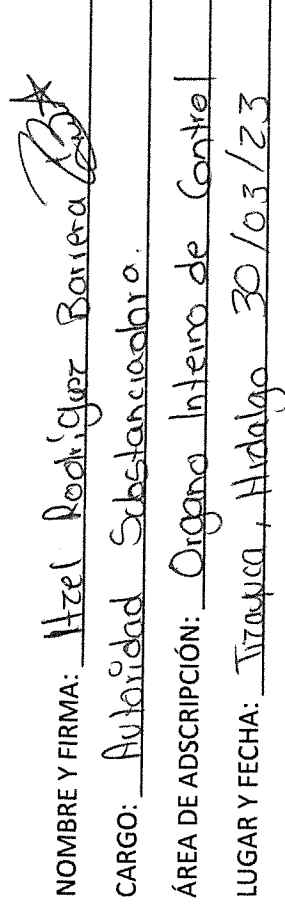 NOMBRE Y FIRMA: Itzel Rodríguez Barrera
CARGO: Autoridad Substanciadora.
ÁREA DE ADSCRIPCIÓN: Organo Interno de Control
LUGAR Y FECHA: Tizayuca, Hidalgo 30/03/23